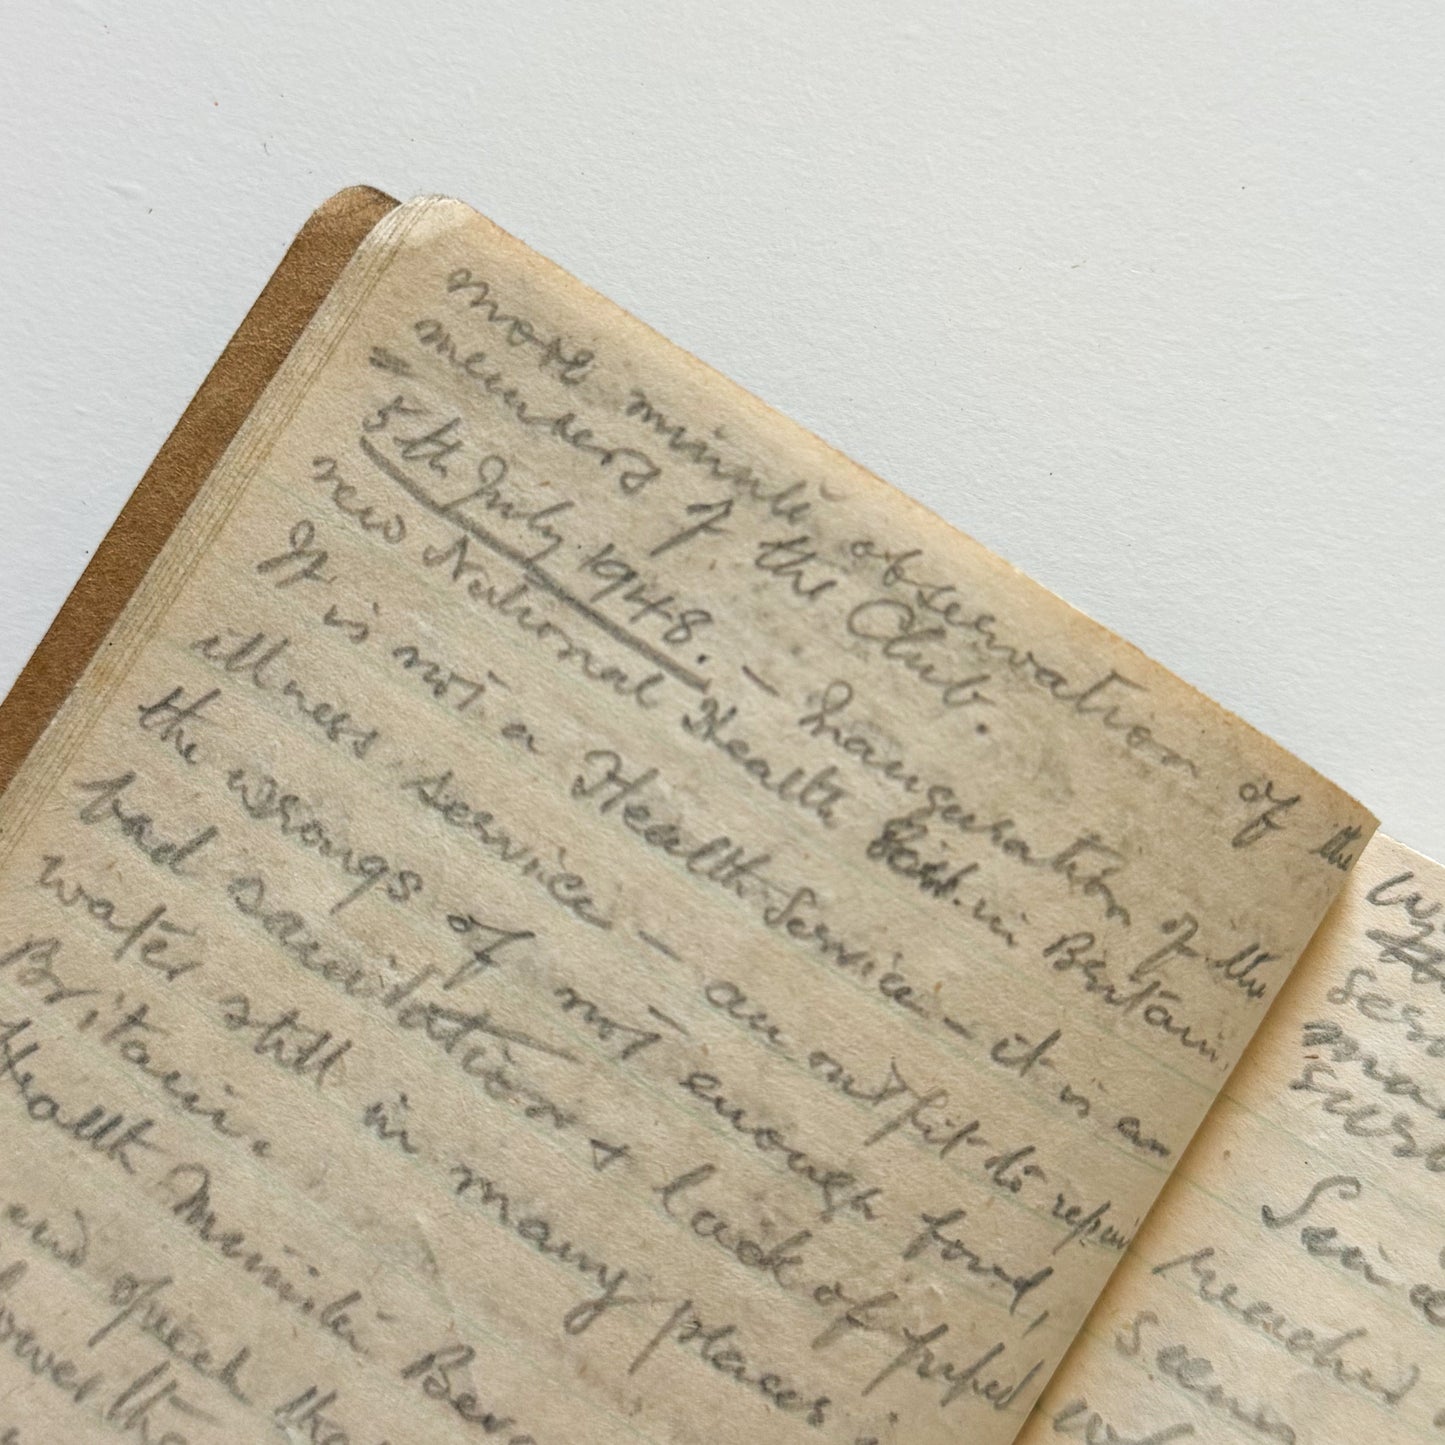 more minute observation of the
members of the Club.
5th July 1948. – Inauguration of the
new National Health in Britain.
It is not a Health Service – it is an
illness service – an outfit to repair
the wrongs of not enough food,
bad sanitation & lack of piped
water still in many places i
Britain.
Health Minister Bev
end speech tha
lower tha
Since
reached
seem